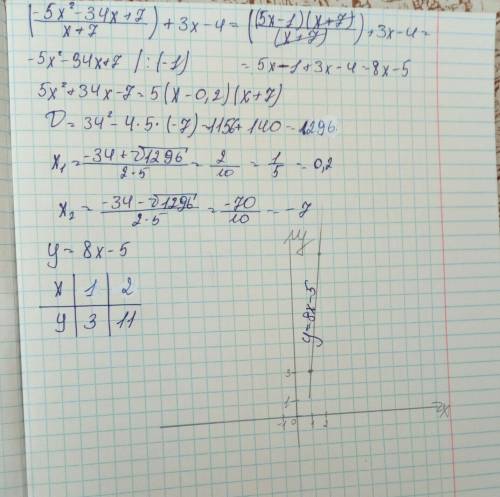 (-5x²-34x+7 / x+7) + 3x-4 = ((5x-1)(x+7) / (x+7)) + 3x-4 =
-5x²-34x+7 | : (-1) = 5x-1+3x-4=8x-5
5x²+34x-7=5(x-0,2)(x+7)
D=34²-4·5·(-7)=1156+140=1296
x₁ = -34+√1296 / 2·5 = 2/10 = 1/5 = 0,2
x₂ = -34-√1296 / 2·5 = -70/10 = -7
y = 8x-5
x 1 2
y 3 11
y
y=8x-5
3
1
-1 0 1 2
x